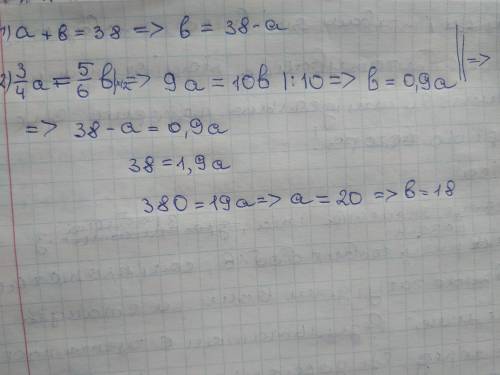 1) a + b = 38 => b = 38 - a
2) 3/4 a = 5/6 b |·12 => 9a = 10b |:10 => b = 0,9a || =>
=> 38 - a = 0,9a
38 = 1,9a
380 = 19a => a = 20 => b = 18